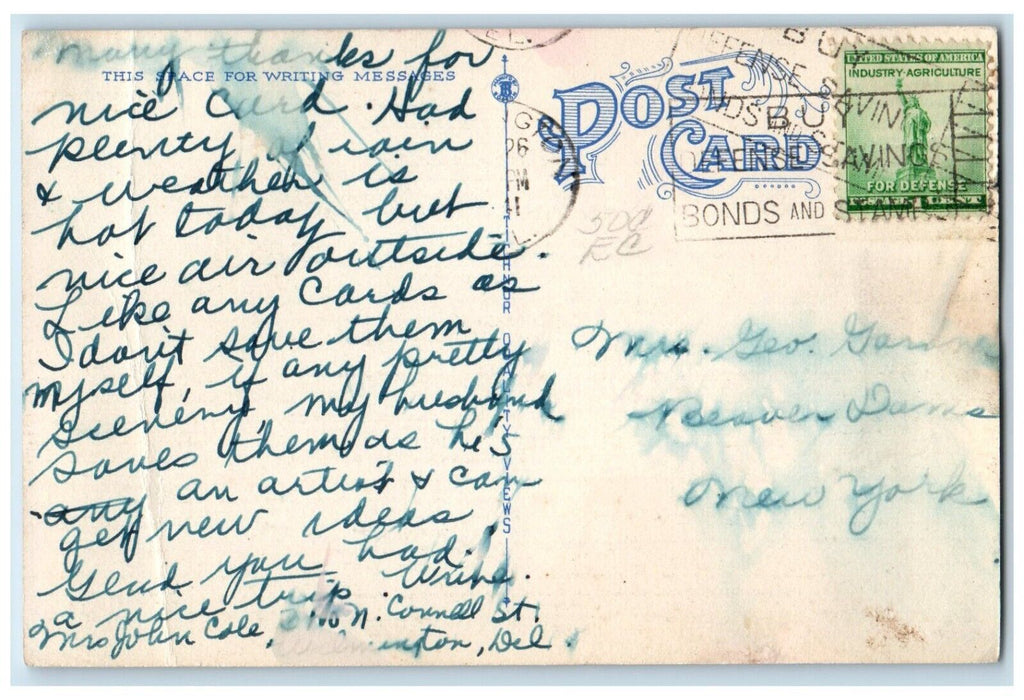 many thanks for
THIS SPACE FOR WRITING MESSAGES
nice card. Had
plenty of rain
& weather is
hot today but
nice air outside.
Like any cards as
I don't save them
myself, if any pretty
scenery my husband
saves them as he's
any an artist & can
get new ideas.
Glad you had
a nice trip. Write.
Mrs John Cole, N. Connell St.
Wilmington, Del.
POST CARD
BUY
DEFENSE SAVINGS
BONDS AND STAMPS
BUY
DEFENSE SAVINGS
BONDS AND STAMPS
UNITED STATES OF AMERICA
INDUSTRY·AGRICULTURE
FOR DEFENSE
26
PM
500
EC
Mrs. Geo.
Beaver Dams
New York